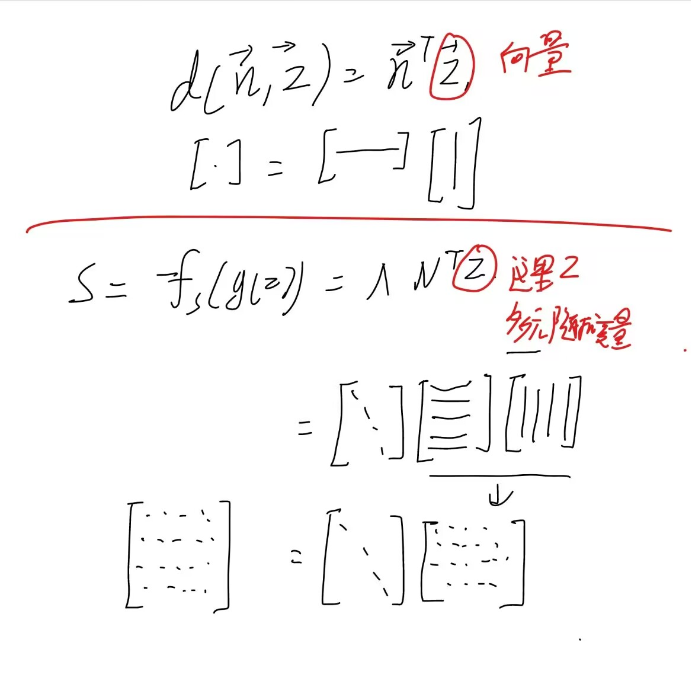 d(n⃗, z⃗) = n⃗ᵀ z⃗ 向量
[·] = [—] [|]
S = f_s(g(z)) = Λ Nᵀ z 这里 Z
多元随机变量
= [⋱] [≡] [||||]
↓
[⋯] = [⋱] [⋯]